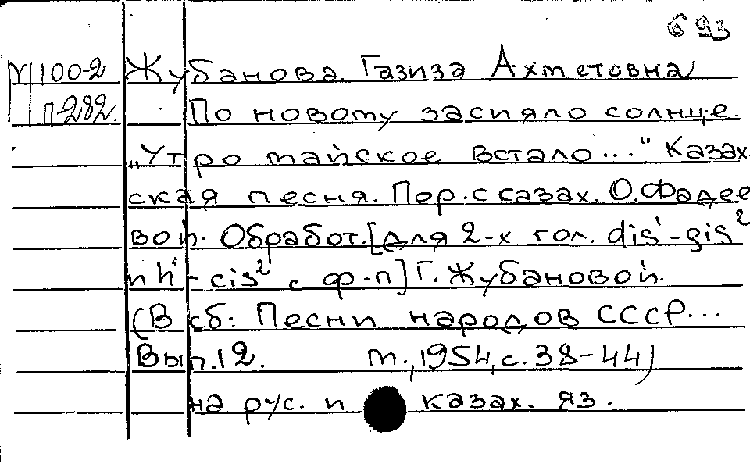 693
М 100-2 Жубанова Газиза Ахметовна
П-282 По новому засияло солнце.
„Утро майское встало..." Казах
ская песня. Пер. с казах. О. Фадее
вой. Обработ. [для 2-х гол. dis¹-gis²
и h¹-cis² с ф-п] Г. Жубановой.
(В сб: Песни народов СССР...
Вып. 12. М., 1954, с. 38-44)
на рус. и казах. яз.